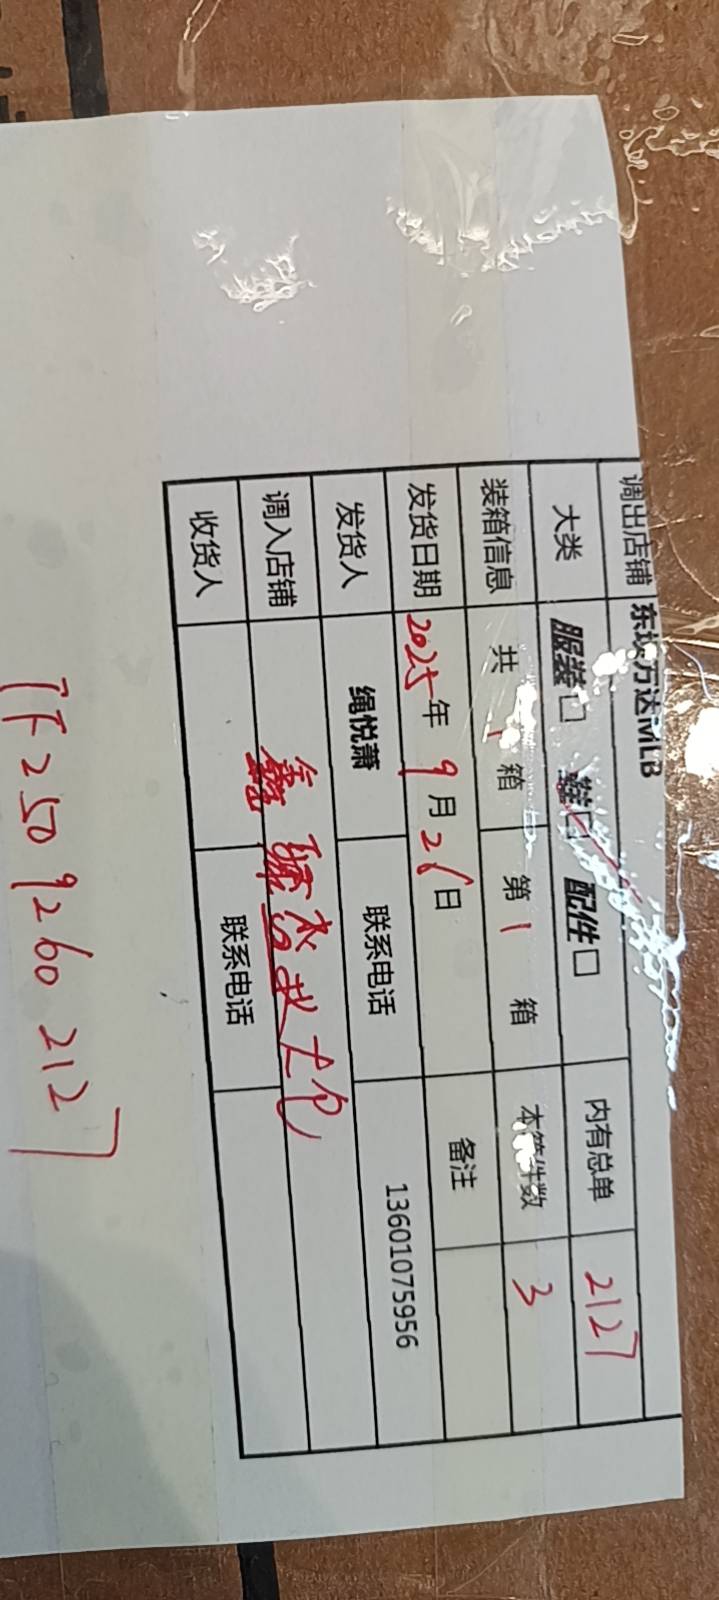 调出店铺 东坝万达MLB
大类 服装□ 鞋□ 配件□ 内有总单 2127
装箱信息 共 1 箱 第 1 箱 本箱件数 3
发货日期 2025年 9月 26日 备注
发货人 绳悦萧 联系电话 13601075956
调入店铺
收货人 联系电话
2509260 2127